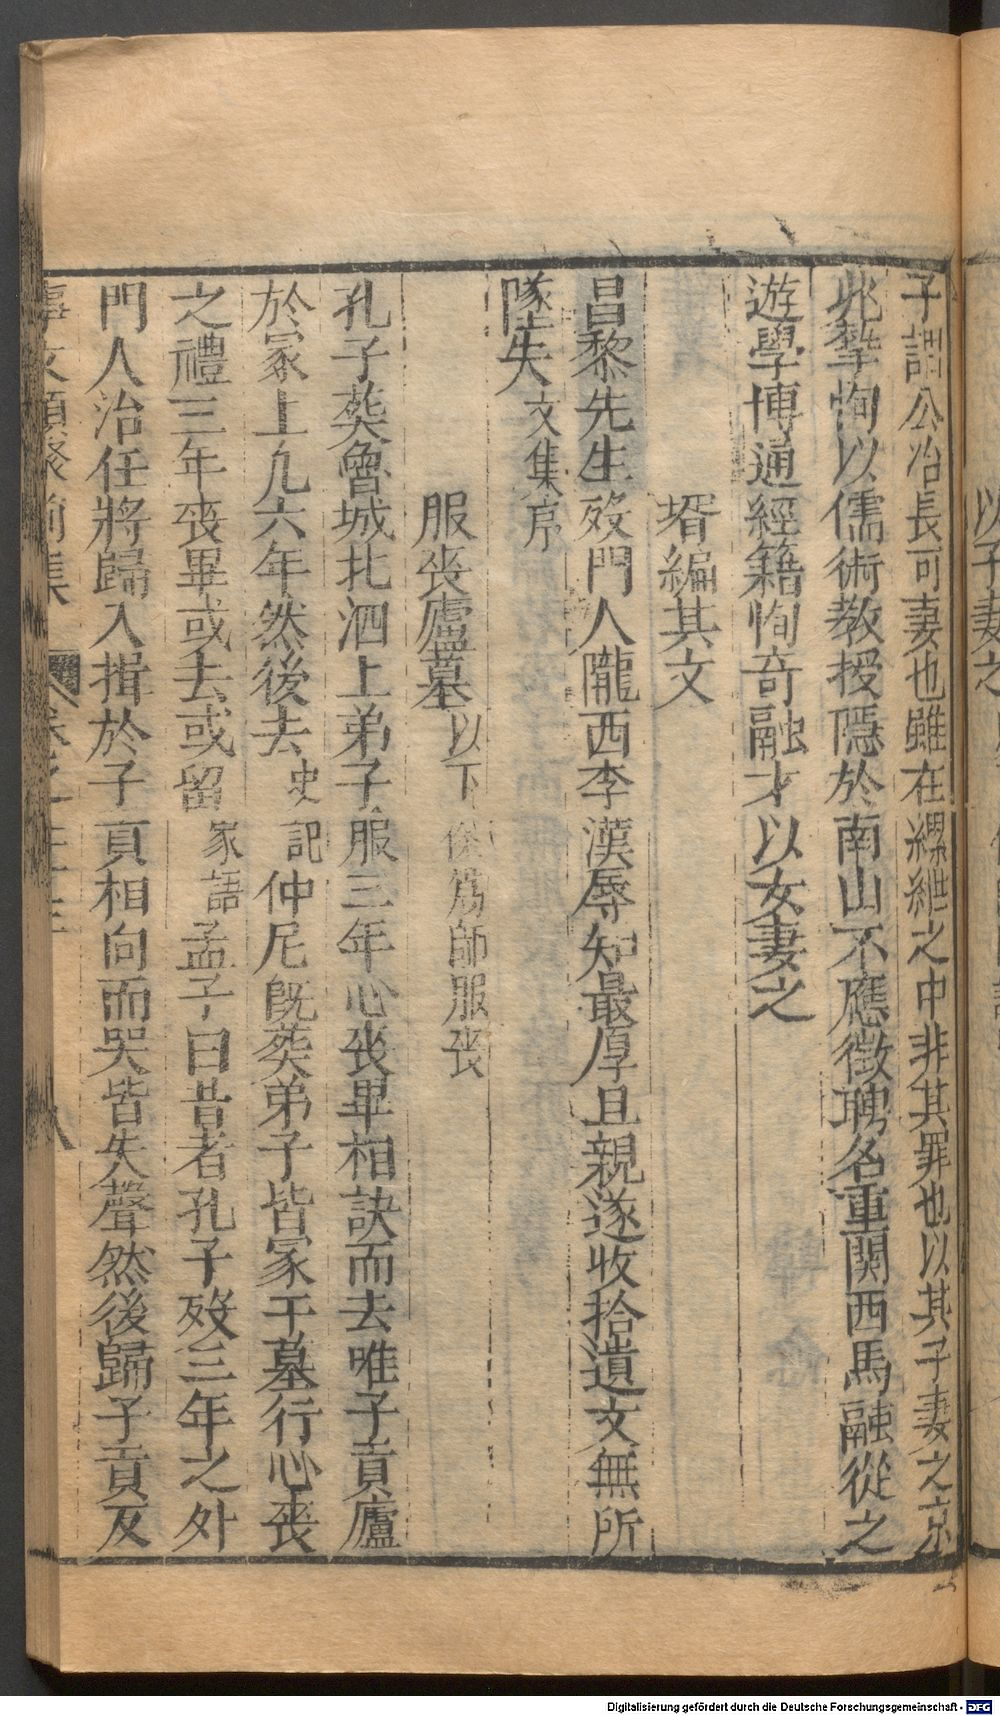 以子妻之
子謂公冶長可妻也雖在縲紲之中非其罪也以其子妻之京
兆摯恂以儒術教授隱於南山不應徵聘名重関西馬融從之
遊學博通經籍恂竒融才以女妻之
壻編其文
昌黎先生歿門人隴西李漢辱知最厚且親遂收拾遺文無所
墜失文集序
服丧廬墓以下係爲師服丧
孔子葬魯城北泗上弟子服三年心丧畢相訣而去唯子貢廬
於冢上凢六年然後去史記仲尼旣葬弟子皆冢于墓行心丧
之禮三年丧畢或去或留家語孟子曰昔者孔子歿三年之外
門人治任將歸入揖於子貢相向而哭皆失聲然後歸子貢反
事文類聚前集 八
Digitalisierung gefördert durch die Deutsche Forschungsgemeinschaft - DFG